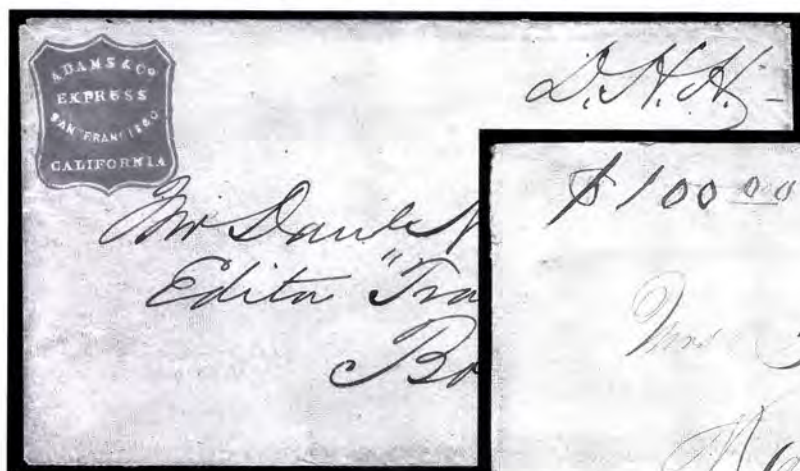 ADAMS & Co
EXPRESS
SAN FRANCISCO
CALIFORNIA
D.H.H.
Mr Danl N
Editor "Tra
Bo
$100 00
Mrs